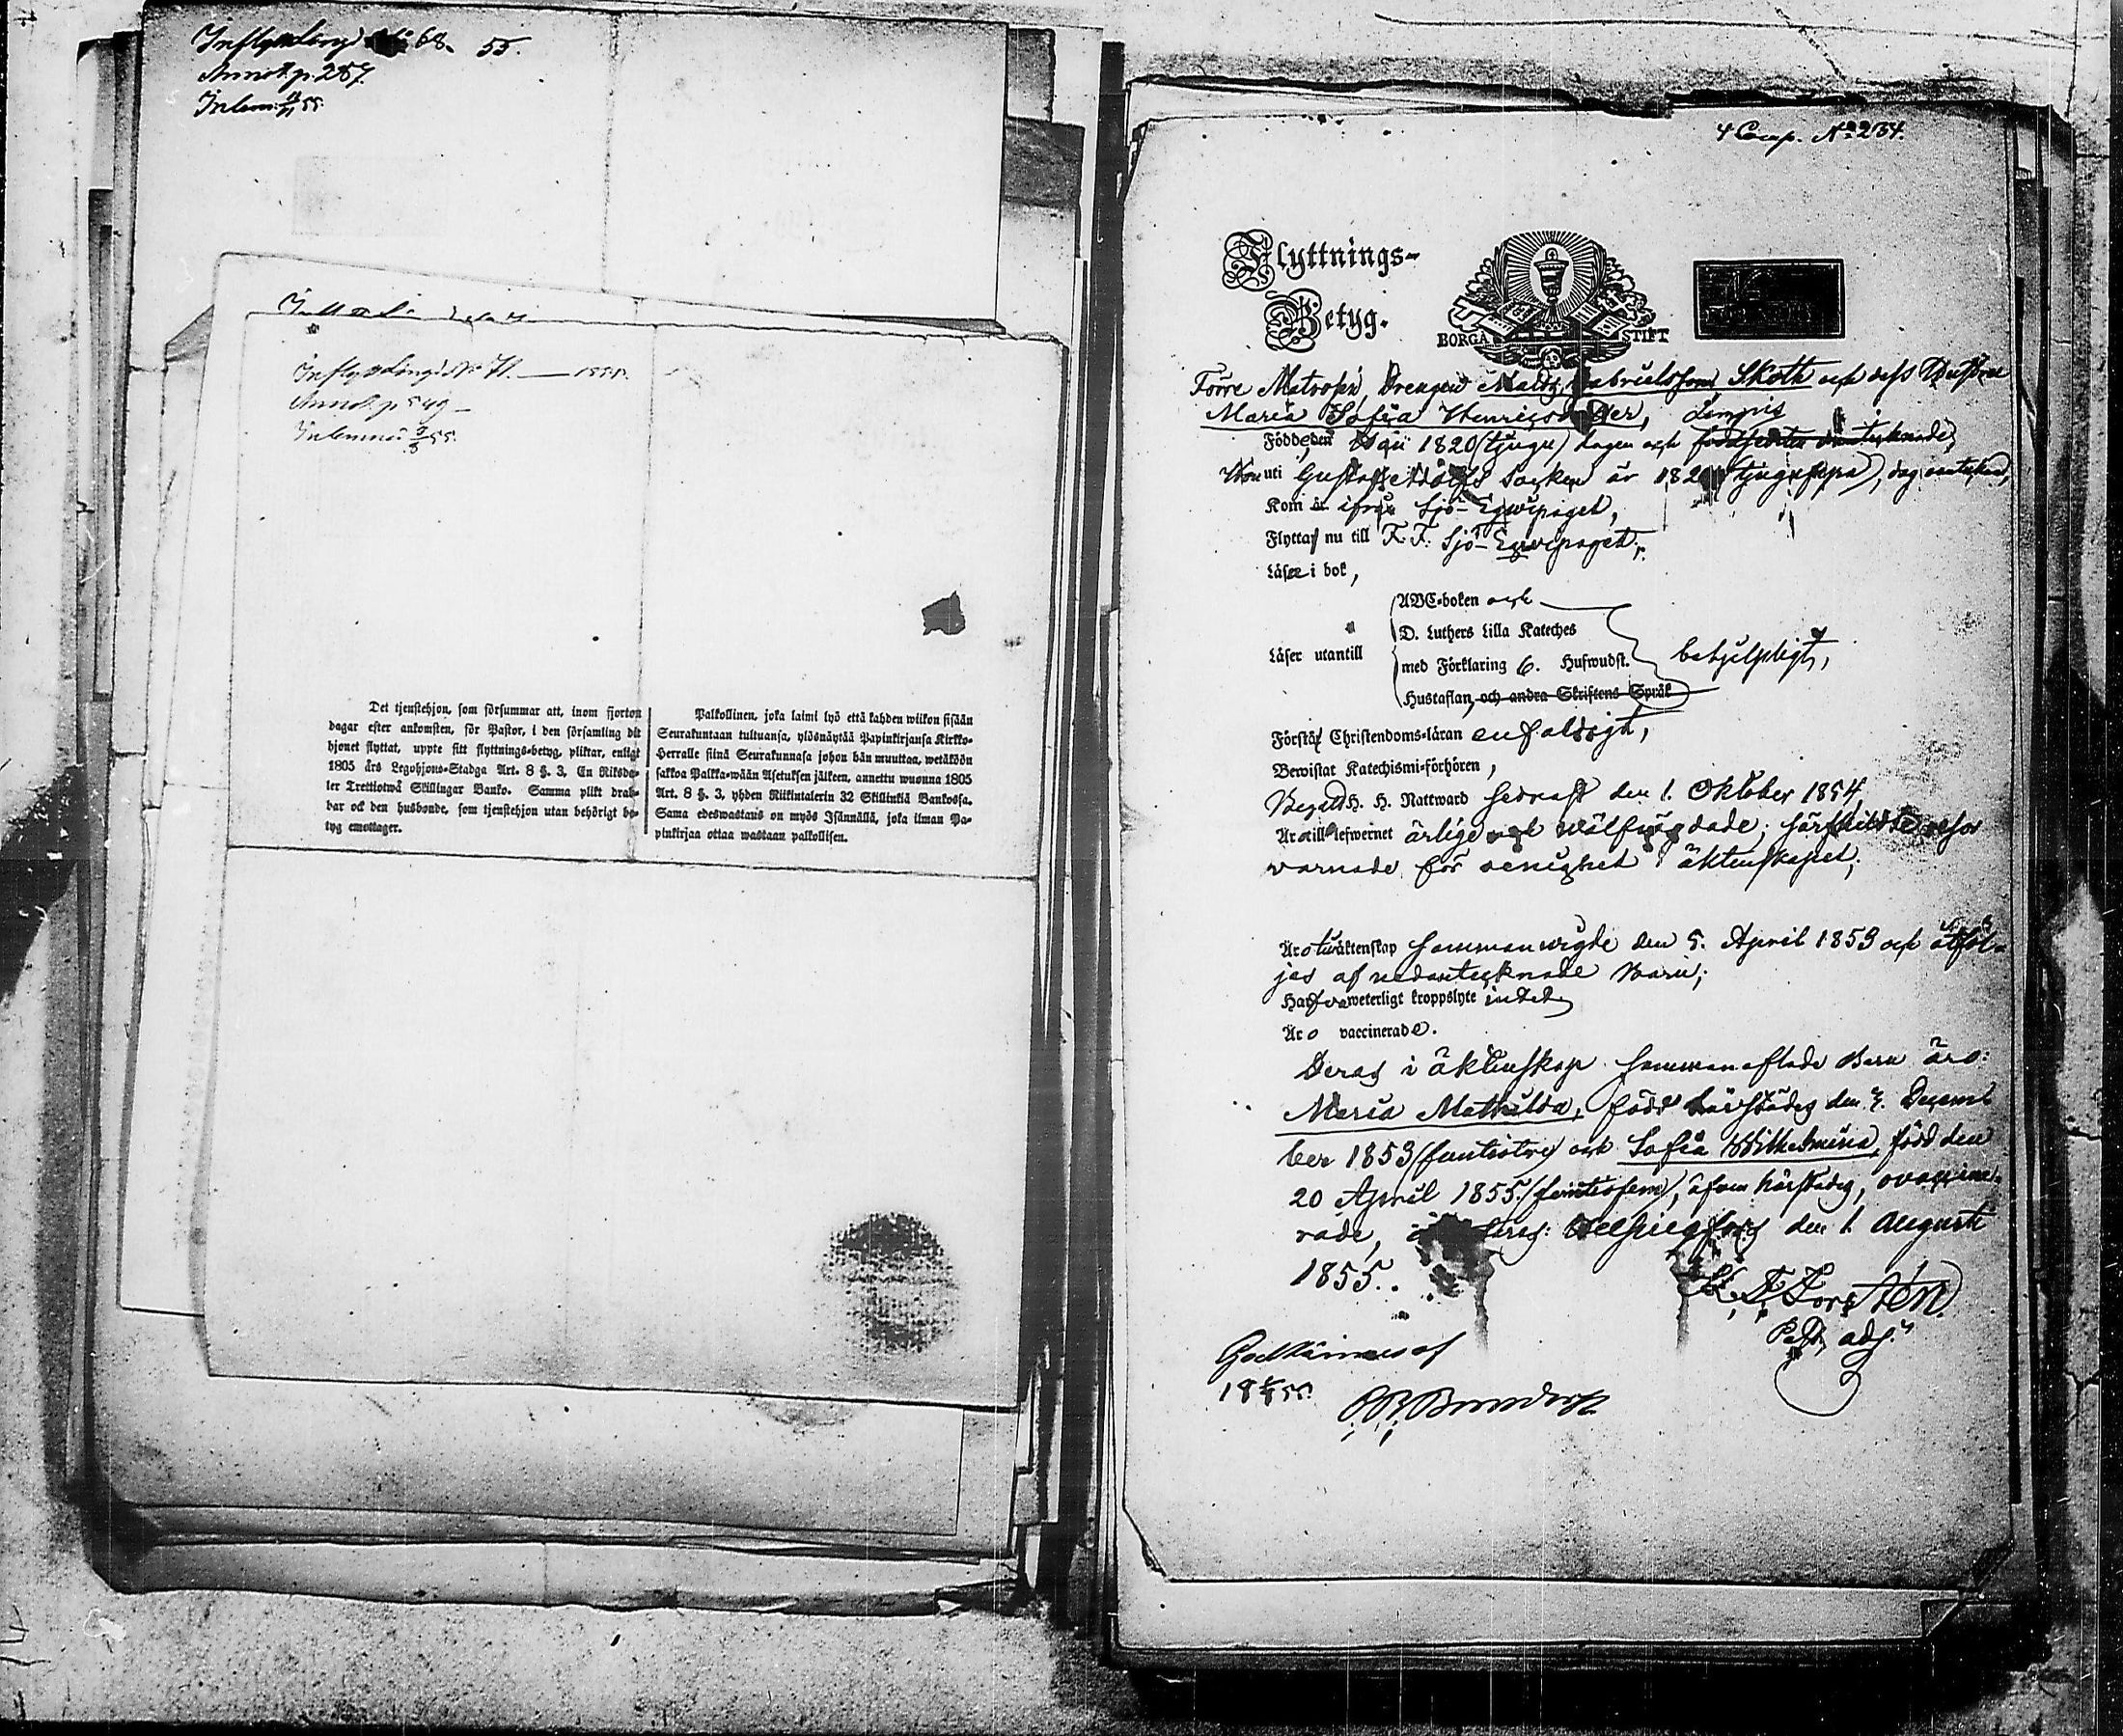 55.
Annot. p. 287.
Inlemn. 55.
Inflyttn. Längd No 71. 1855.
Annot. p. 549
Inlemnad 55.
Det tjenstehjon, som försummar att, inom fjorton
dagar efter ankomsten, för Pastor, i den församling dit
hjonet flyttat, uppte sitt flyttnings-betyg, pliktar, enligt
1805 års Legohjons-Stadga Art. 8 §. 3, En Riksda-
ler Trettiotwå Skillingar Banko. Samma plikt drab-
bar ock den husbonde, som tjenstehjon utan behörigt be-
tyg emottager.
Palkollinen, joka laimi lyö että kahden wiikon sisään
Seurakuntaan tultuansa, ylösnäytää Papinkirjansa Kirkko-
Herralle siinä Seurakunnasa johon hän muuttaa, wetäköön
sakkoa Palkka-wään Asetuksen jälkeen, annettu wuonna 1805
Art. 8 §. 3, yhden Riikintalerin 32 Skillinkiä Bankossa.
Sama edeswastaus on myös Isännällä, joka ilman Pa-
pinkirjaa ottaa wastaan palkollisen.
4 Comp. No 234.
Flyttnings-
Betyg.
BORGÅ STIFT
Förre Matrosen, Drengen Matts Gabrielsson Skoth och dess Hustru
Maria Sofia Henricsdotter,
Födde, den 1820 (tjugu) dagen och
uti Gustaf Adolfs Socken år dag
Kom ifrån Sjö-Equipaget,
Flytta nu till F. F. Sjö-Equipaget;
Läse i bok,
Läser utantill
ABC-boken och
D. Luthers Lilla Kateches
med Förklaring 6. Hufwudst.
Hustaflan, och andra Skriftens Språk
behjelpligt,
Förstå Christendoms-läran enfaldigt,
Bewistat Katechismi-förhören,
Begått H. H. Nattward sednast den 1. Oktober 1854,
Äro till lefwernet ärlige och wälfrägdade;
varnade för oenighet i äktenskapet;
Äro i äktenskap sammanvigde den 5. April 1853 och åtföl-
jas af nedantecknade Barn;
Hafva weterligt kroppslyte intet,
Äro vaccinerade.
Deras i äktenskap sammanaflade Barn äro:
Maria Mathilda, född härstädes den 7. Decem-
ber 1853 (femtiotre) och Sofia Wilhelmina, född den
20 April 1855 (femtiofem), äfven härstädes, ovaccine-
rade, Helsingfors den 1. Augusti
1855.
Forstén
Past. adj.
Godkännes af